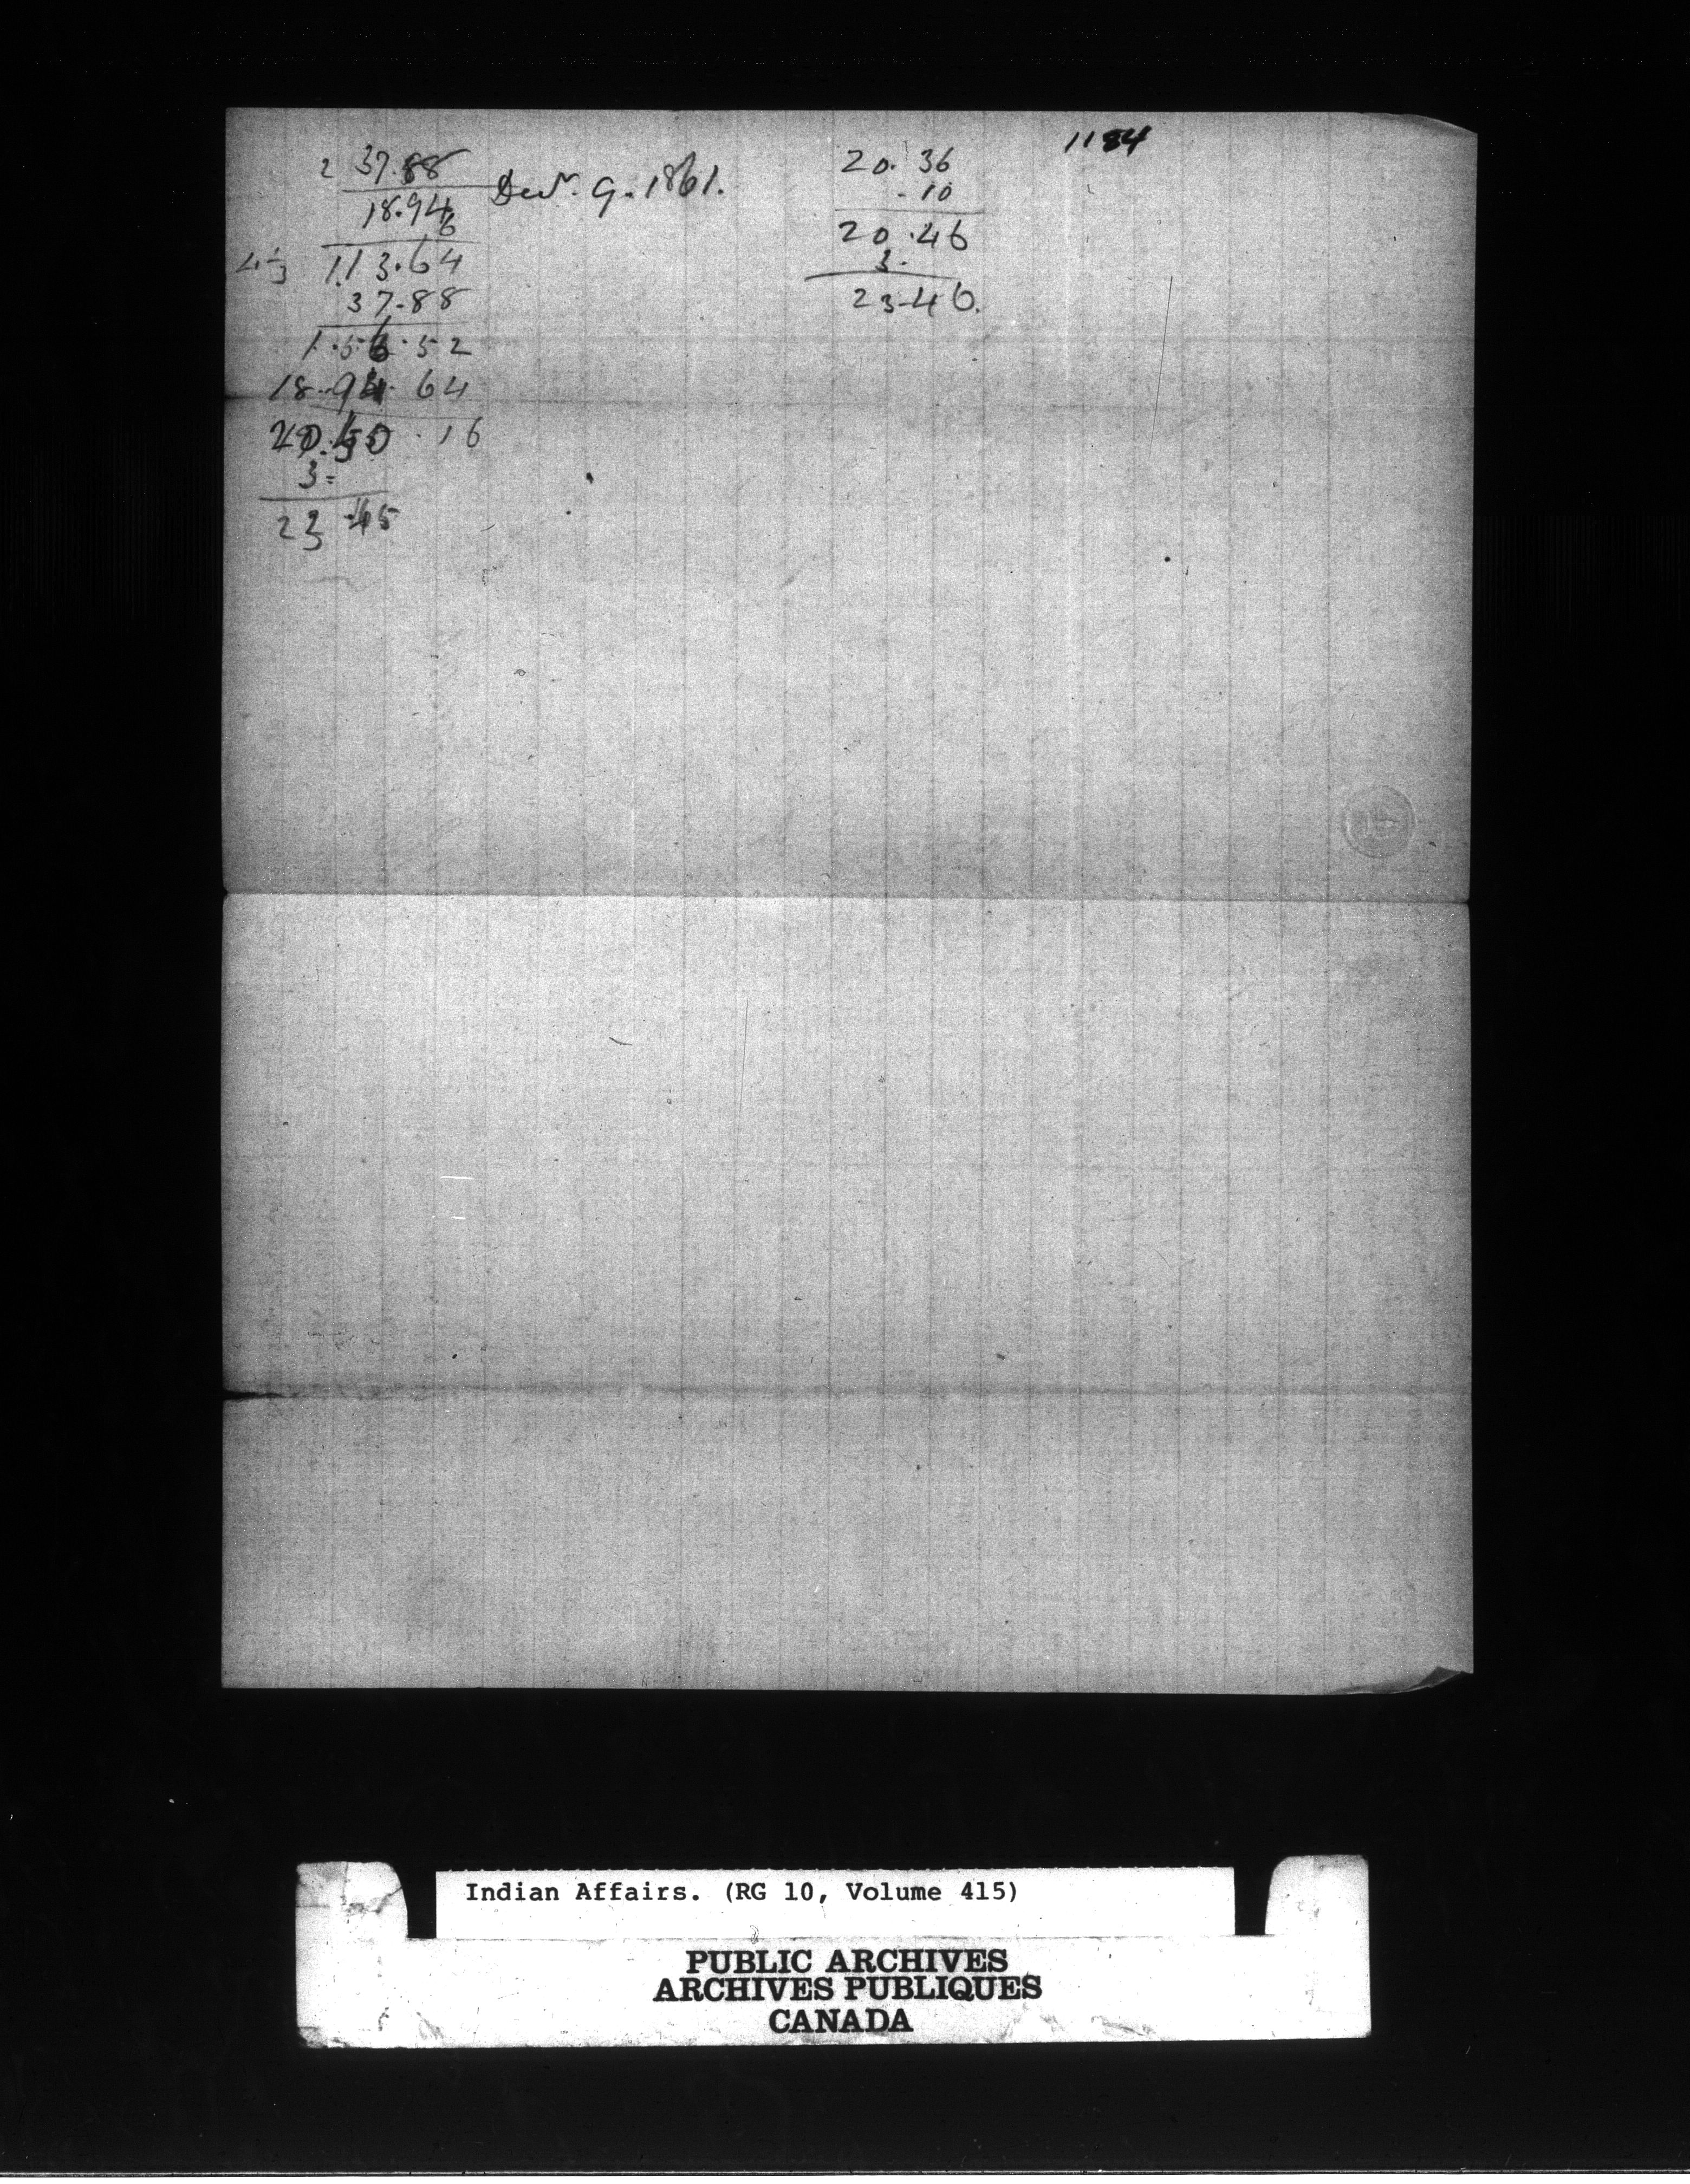 1184
2 37.88
Decr. 9. 1861.
18.94
6
113.64
37.88
1.56.52
18.94.64
20.50.16
3=
23.45
20.36
.10
20.46
3.
23.46.
Indian Affairs. (RG 10, Volume 415)
PUBLIC ARCHIVES
ARCHIVES PUBLIQUES
CANADA